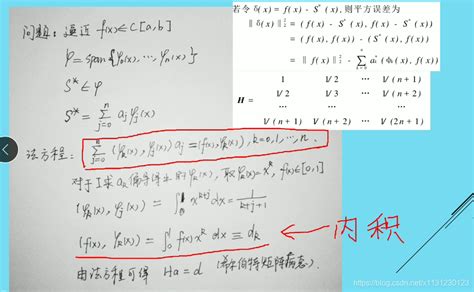 问题: 逼近 f(x)∈C[a,b]
φ=span{φ₀(x),…,φₙ(x)}
S*∈φ
S*=∑ⱼ₌₀ⁿ aⱼφⱼ(x)
若令 δ(x) = f(x) - S*(x), 则平方误差为
‖δ(x)‖₂² = (f(x) - S*(x), f(x) - S*(x))
= (f(x), f(x)) - (S*(x), f(x))
= ‖f(x)‖₂² - ∑ₖ₌₀ⁿ aₖ*(φₖ(x), f(x))
1 1/2 ⋯ 1/(n+1)
H = 1/2 1/3 ⋯ 1/(n+2)
⋮ ⋮ ⋮
1/(n+1) 1/(n+2) ⋯ 1/(2n+1)
法方程: ∑ⱼ₌₀ⁿ (φₖ(x), φⱼ(x)) aⱼ = (f(x), φₖ(x)), k=0,1,…,n.
对于I求aₖ偏导得 φₖ(x), 取φₖ(x)=xᵏ, f(x)∈[0,1]
(φₖ(x), φⱼ(x)) = ∫₀¹ xᵏ⁺ʲ dx = 1/(k+j+1)
(f(x), φₖ(x)) = ∫₀¹ f(x)xᵏ dx ≡ dₖ
内积
由法方程可得 Ha=d (希尔伯特矩阵病态).
https://blog.csdn.net/x1131230123